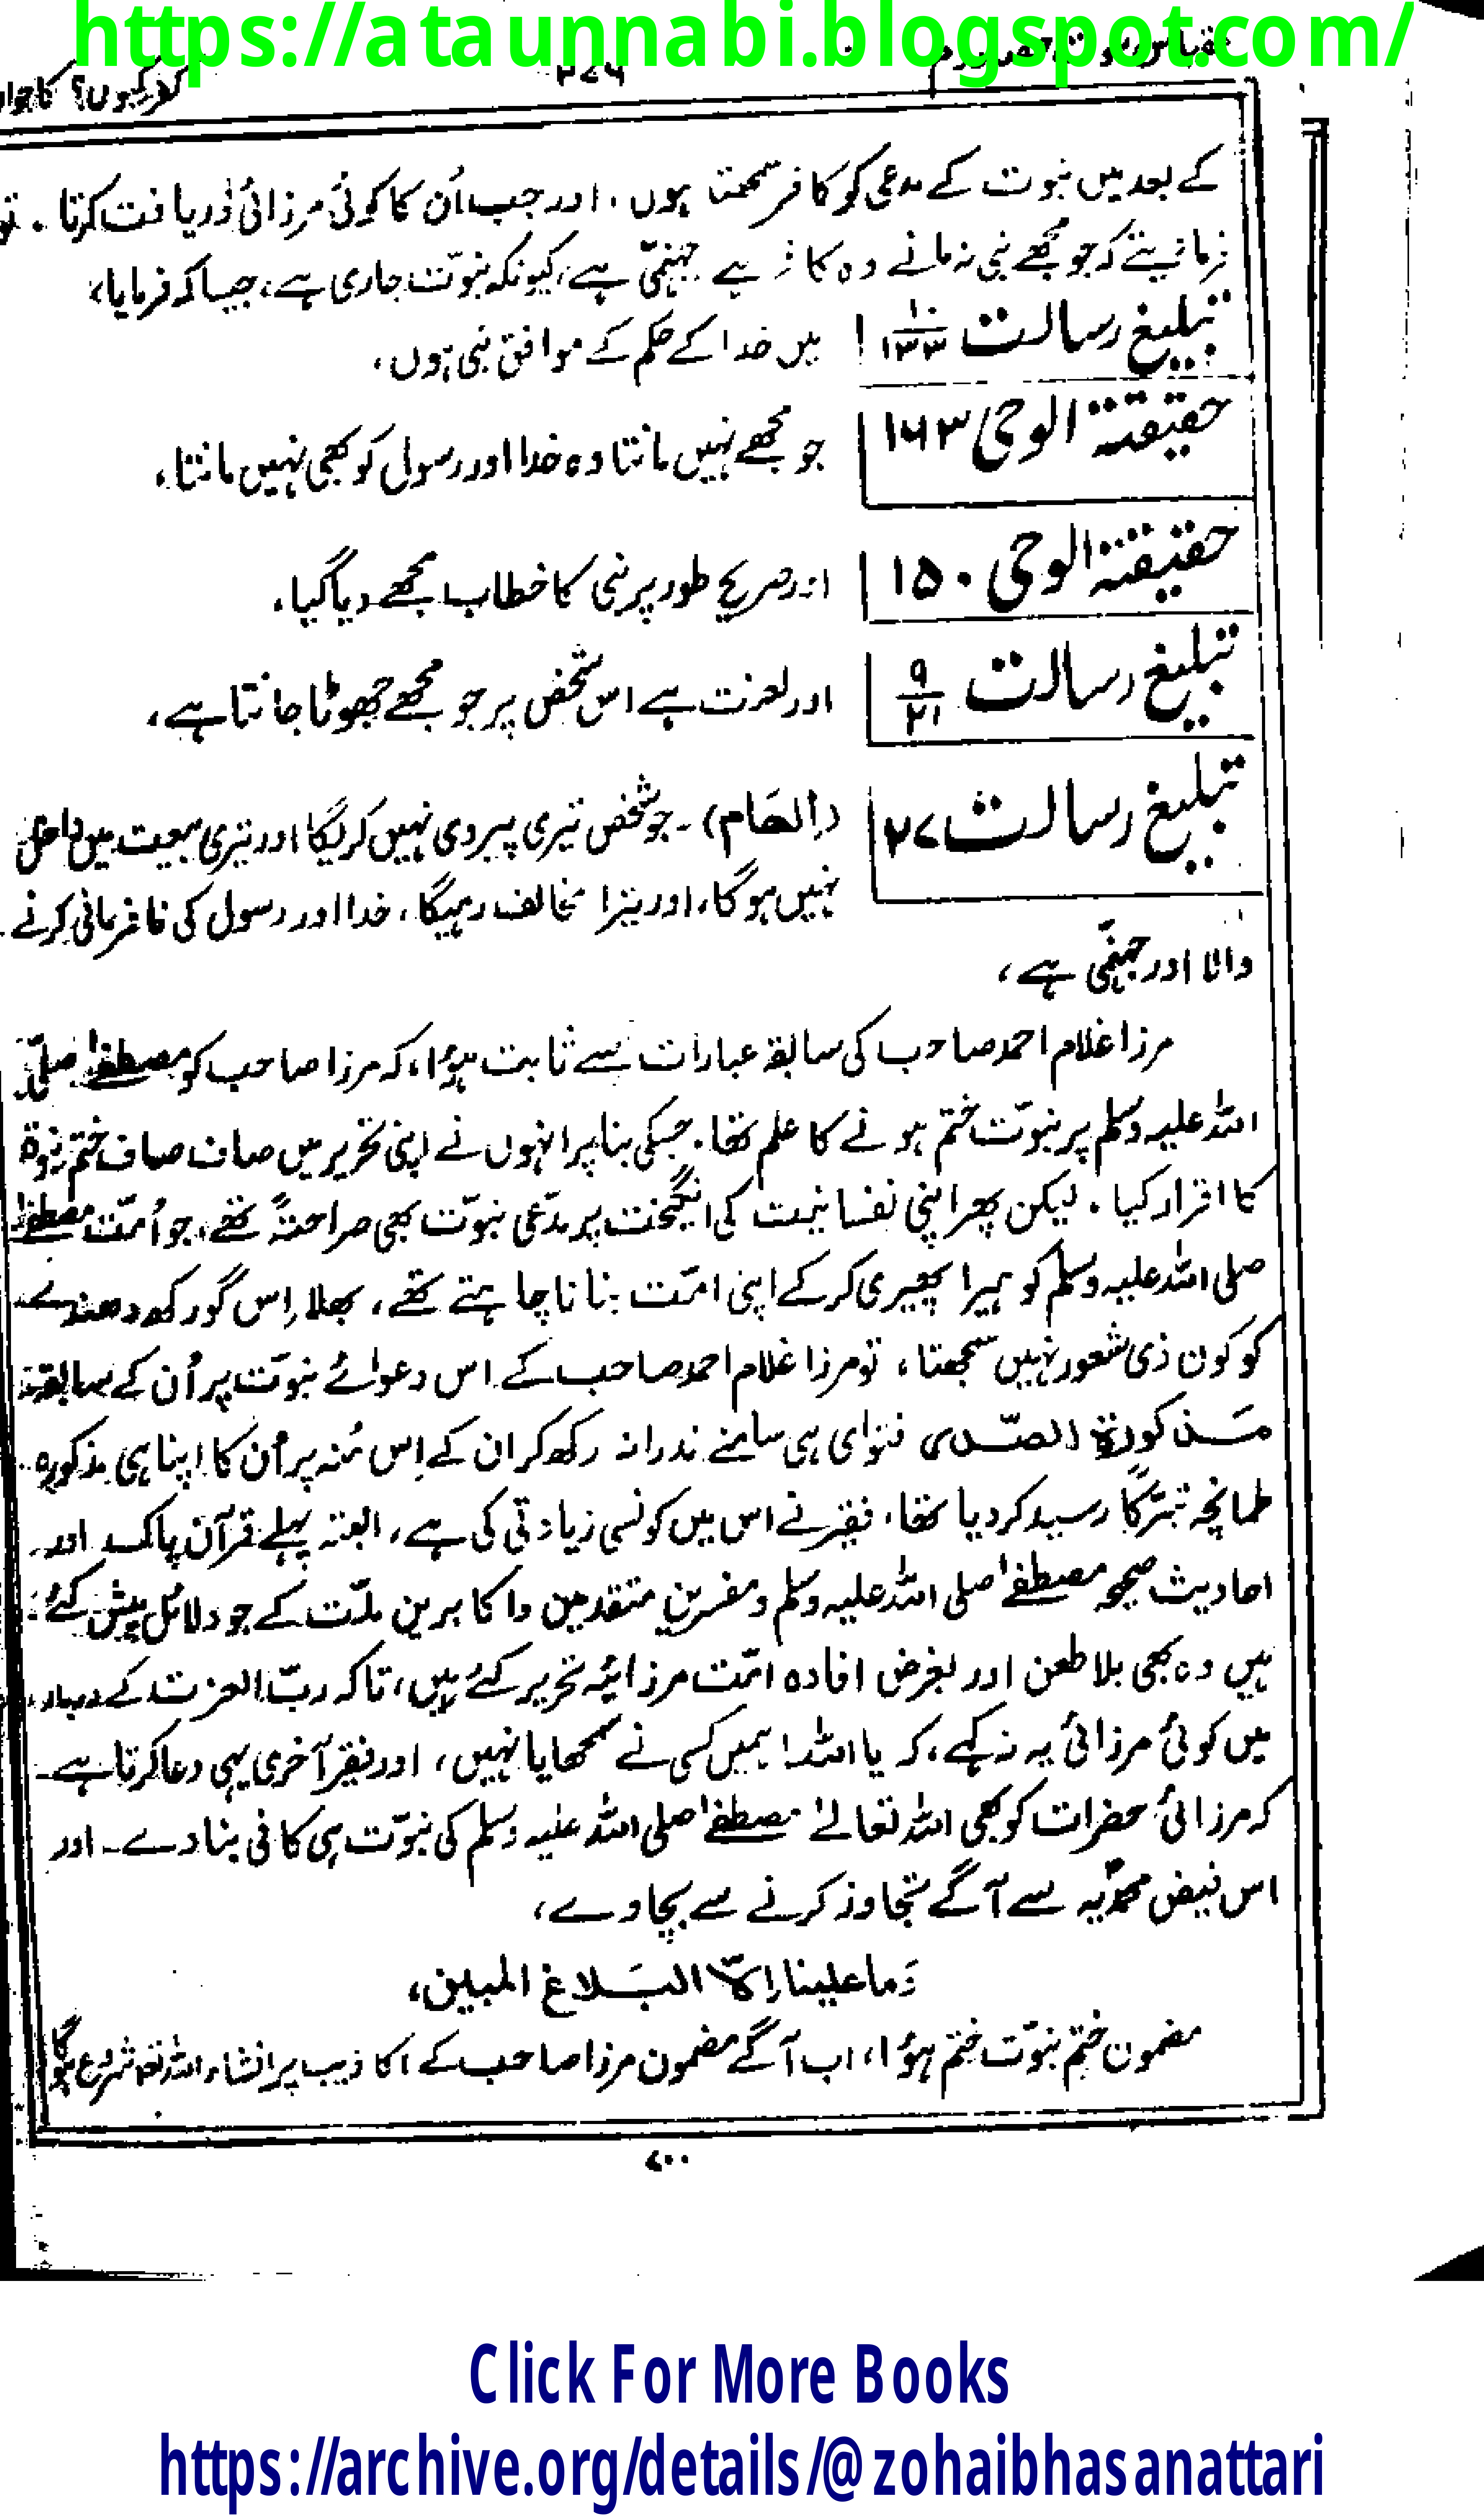 https://ataunnabi.blogspot.com/
۲۷۶
کفر کیوں؟ کا
کے بعد میں نبوت کے مدعی کو کافر سمجھتا ہوں۔ اور جب اُن کا کوئی مرزائی دریافت کرتا۔
فرماتے کہ جو مجھے نبی نہ مانے وہ کافر ہے جہنمی ہے، کیونکہ نبوّت جاری ہے، جیسا کہ فرمایا،
تبلیغ رسالت ۱۰/۱۳۳ میں خدا کے حکم کے موافق نبی ہوں،
حقیقۃ الوحی ۱۶۳ جو مجھے نہیں مانتا وہ خدا اور رسول کو بھی نہیں مانتا،
حقیقۃ الوحی ۱۵۰ اور صریح طور پر نبی کا خطاب مجھے دیا گیا،
تبلیغ رسالت ۹/۲۱ اور لعنت ہے اس شخص پر جو مجھے جھوٹا جانتا ہے،
تبلیغ رسالت ۲۷ (الہام)۔ جو شخص تیری پیروی نہیں کریگا اور تیری بیعت میں داخل
نہیں ہوگا، اور تیرا مخالف رہیگا، خدا اور رسول کی نافرمانی کرنے
والا اور جہنمی ہے،
مرزا غلام احمد صاحب کی سابقہ عبارات سے ثابت ہؤا، کہ مرزا صاحب کو مصطفےٰ صلّی
اللہ علیہ وسلم پر نبوّت ختم ہونے کا علم تھا۔ جسکی بنا پر انہوں نے اپنی تحریر میں صاف صاف ختم نبوۃ
کا اقرار کیا۔ لیکن پھر اپنی نفسانیت کی انگیخت پر مدّعی نبوّت بھی صراحتہً تھے، جو اُمّت مصطفےٰ
صلی اللہ علیہ وسلم کو ہیرا پھیری کرکے اپنی امّت بنانا چاہتے تھے، بھلا اِس گورکھ دھندے
کو کون ذی شعور نہیں سمجھتا، تو مرزا غلام احمد صاحب کے اس دعوائے نبوّت پر اُن کے سابقہ
مَذکورۃ الصّدر فتوای ہی سامنے ندرانہ رکھ کر ان کے اِس مُنہ پر اُن کا اپنا ہی مذکورہ
طمانچہ تبرّکاً رسید کر دیا تھا، فقیر نے اس میں کونسی زیادتی کی ہے، البتہ پہلے قرآن پاک اور
احادیث صحیحہ مصطفےٰ صلی اللہ علیہ وسلم و مفسرین متقدمین واکابرین ملّت کے جو دلائل پیش کئے
ہیں وہ بھی بلا طعن اور بغرض افادہ امّت مرزائیّہ تحریر کئے ہیں، تاکہ ربّ العزت کے دربار
میں کوئی مرزائی یہ نہ کہے، کہ یا اللہ! ہمیں کسی نے سمجھایا نہیں، اور فقیر آخری یہی دعا کرتا ہے۔
کہ مرزائی حضرات کو بھی اللہ تعالےٰ مصطفےٰ صلی اللہ علیہ وسلم کی نبوّت ہی کافی بنا دے۔ اور
اس فیض محمدؐیہ سے آگے تجاوز کرنے سے بچاوے،
وَما علینا اِلّا البَلاغ المبین،
مضمون ختم نبوّت ختم ہؤا، اب آگے مضمون مرزا صاحب کے اکاذیب پر انشاء اللہ تعہ شروع ہوگا
۷۰۰
Click For More Books
https://archive.org/details/@zohaibhasanattari